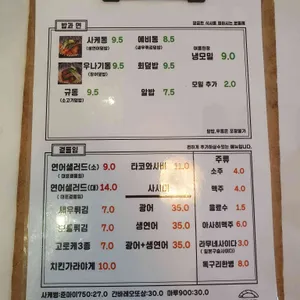 밥과 면
사케동 9.5
에비동 8.5
우나기동 9.5
회덮밥 9.5
규동 9.5
(소고기덮밥)
알밥 7.5
냉모밀 9.0
모밀 추가 2.0
곁들임
연어샐러드(소) 9.0
연어샐러드(대) 14.0
새우튀김 7.0
7.0
고로케3종 7.0
치킨가라아게 10.0
타코와사비
사시미
광어 35.0
생연어 35.0
광어+생연어 35.0
주류
소주 4.0
맥주 4.0
음료수 1.5
아사히맥주 6.0
라무네사이다 3.0
독구리한병 8.0
사케병:준마이750-27.0 간바레오또상:30.0 마루900:30.0